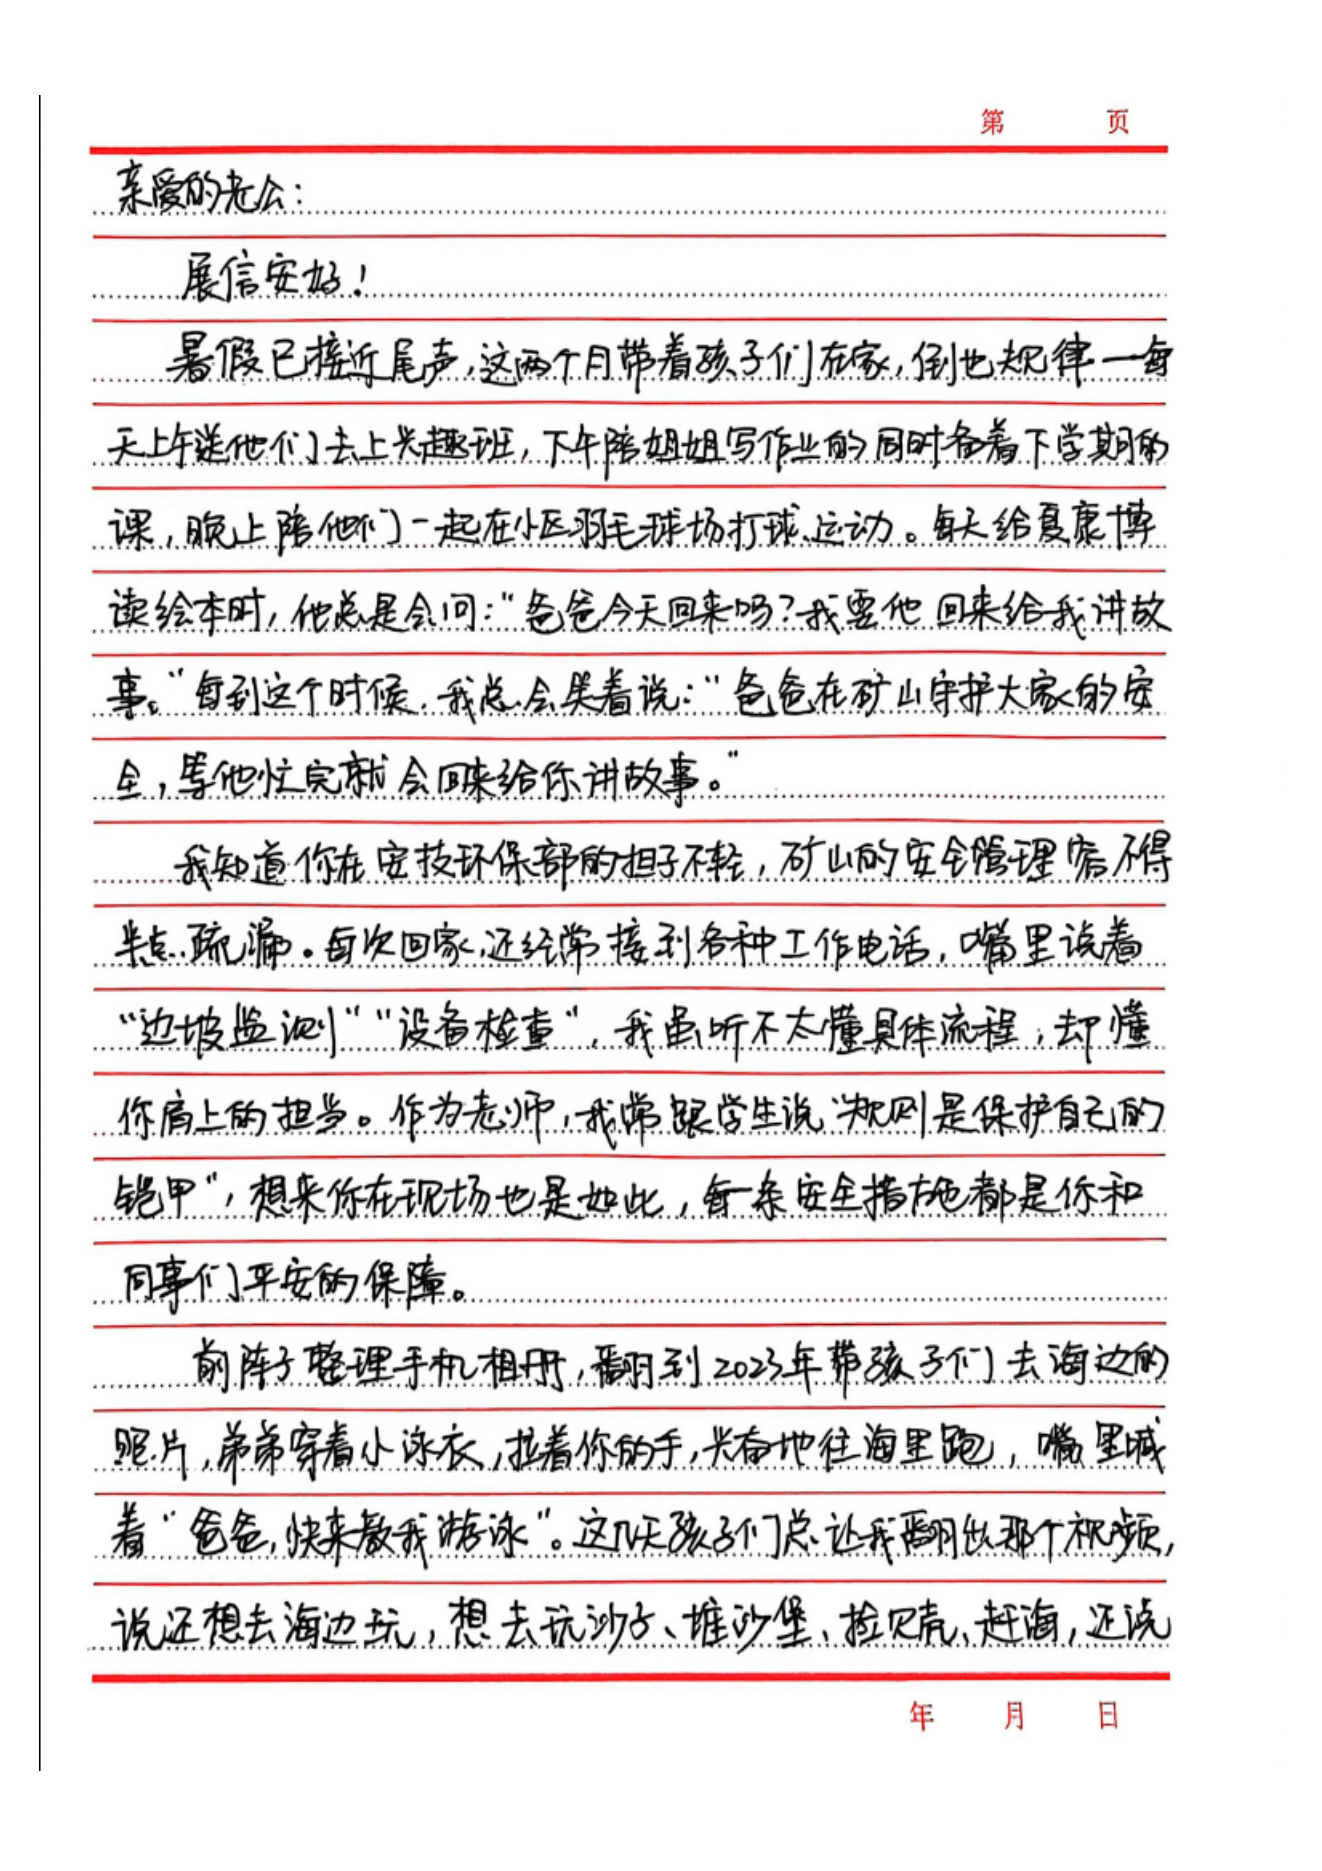 第 页
亲爱的老公：
展信安好！
暑假已接近尾声，这两个月带着孩子们在家，倒也规律一每
天上午送他们去上兴趣班，下午陪姐姐写作业的同时备着下学期的
课，晚上陪他们一起在小区羽毛球场打球、运动。每天给夏康博
读绘本时，他总是会问：“爸爸今天回来吗？我要他回来给我讲故
事。”每到这个时候，我总会笑着说：“爸爸在矿山守护大家的安
全，等他忙完就会回来给你讲故事。”
我知道你在安技环保部的担子不轻，矿山的安全管理容不得
半点疏漏。每次回家，还经常接到各种工作电话，嘴里说着
“边坡监测”“设备检查”，我虽听不太懂具体流程，却懂
你肩上的担当。作为老师，我常跟学生说“规则是保护自己的
铠甲”，想来你在现场也是如此，每一条安全措施都是你和
同事们平安的保障。
前阵子整理手机相册，翻到2023年带孩子们去海边的
照片，弟弟穿着小泳衣，拉着你的手，兴奋地往海里跑，嘴里喊
着“爸爸，快来教我游泳”。这几天孩子们总让我翻出那个视频，
说还想去海边玩，想去玩沙子、堆沙堡、捡贝壳、赶海，还说
年 月 日